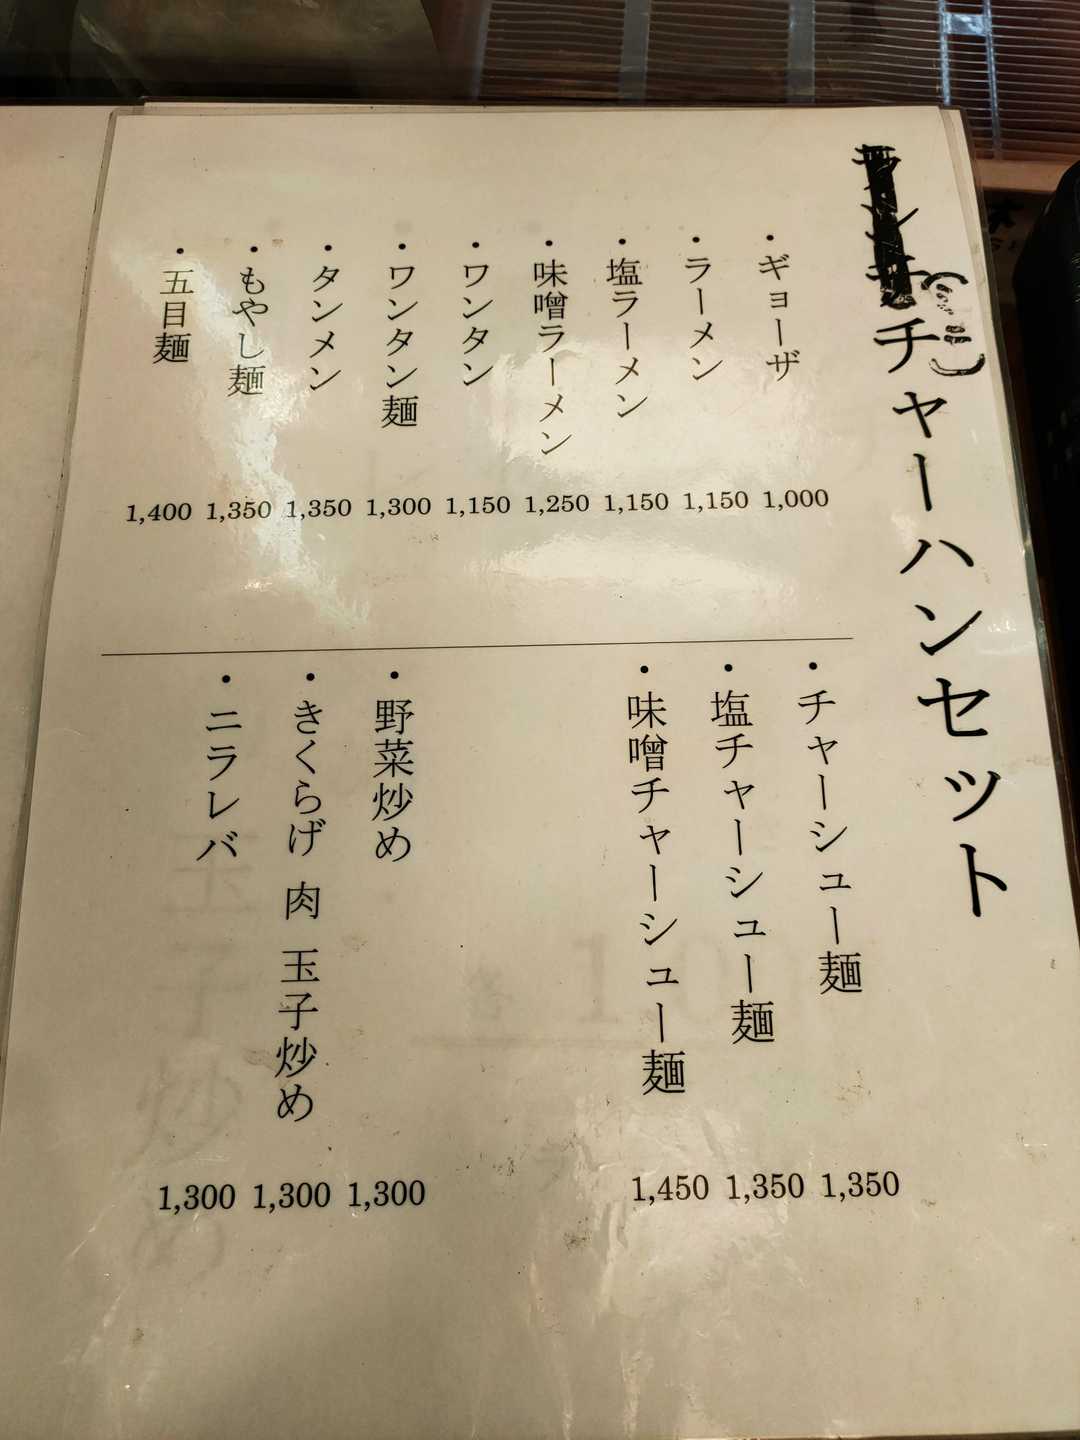 チャーハンセット
・ギョーザ 1,000
・ラーメン 1,150
・塩ラーメン 1,150
・味噌ラーメン 1,250
・ワンタン 1,150
・ワンタン麺 1,300
・タンメン 1,350
・もやし麺 1,350
・五目麺 1,400
・チャーシュー麺 1,350
・塩チャーシュー麺 1,350
・味噌チャーシュー麺 1,450
・野菜炒め 1,300
・きくらげ 肉 玉子炒め 1,300
・ニラレバ 1,300